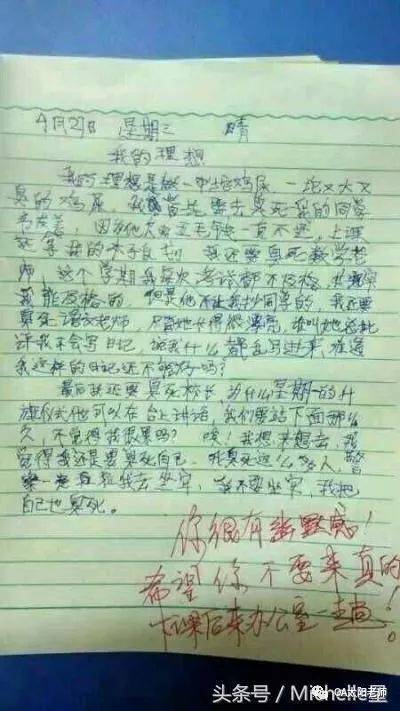 9月2日 星期三 晴
我的理想
我的理想是做一中坨鸡屎,一坨又大又
臭的鸡屎,我首先要去臭死我的同学
因为他欠我五毛钱一直不还,上课
还拿我的本子乱划,我还要臭死数学老
师,这个学期我每次考试都不及格,其实
我能及格的,但是他不让我抄同学的,我还要
臭死语文老师,尽管她长得很漂亮,谁叫她总批
评我不会写日记,说我什么都乱写进来,难道
我这样的日记还不够好吗?
最后我还要臭死校长,为什么星期一的升
旗仪式他可以在台上讲话,我们要站下面那么
久,不觉得我很累吗?唉!我想来想去,我
觉得我还是要臭死自己,我臭死这么多人,警
我去坐牢,我不要坐牢,我把
自己也臭死。
你很有幽默感!
希望你不要来真的!
下课后来办公室一趟。
头条号 / Michelle星
OA太阳老师